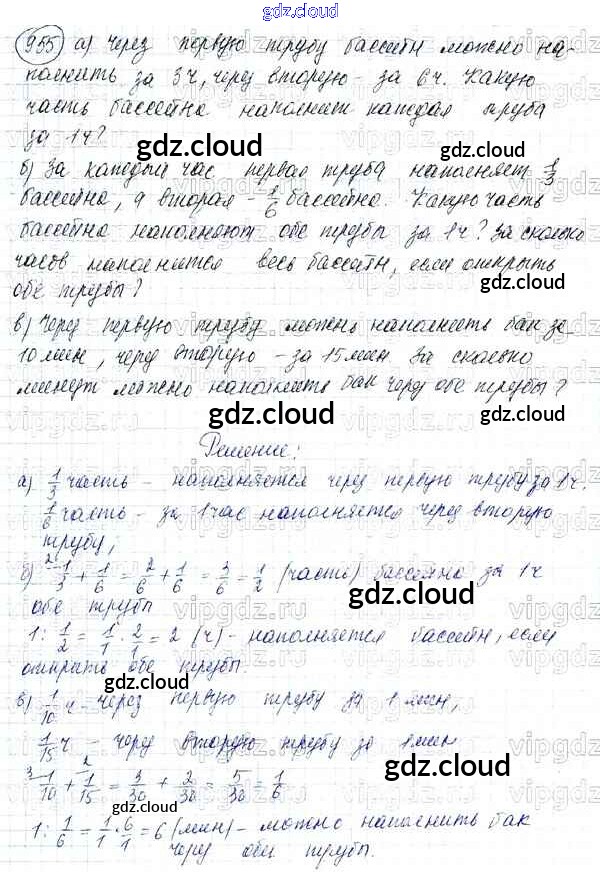 gdz.cloud
955 а) Через первую трубу бассейн можно на-
полнить за 3ч, через вторую – за 6ч. Какую
часть бассейна наполнит каждая труба
за 1ч?
gdz.cloud gdz.cloud
б) За каждый час первая труба наполняет 1/3
бассейна, а вторая – 1/6 бассейна. Какую часть
бассейна наполняют обе трубы за 1ч? За сколько
gdz.cloud
часов наполнится весь бассейн, если открыть
обе трубы?
gdz.cloud
в) Через первую трубу можно наполнить бак за
10 мин, через вторую – за 15 мин За сколько
минут можно наполнить бак через обе трубы?
gdz.cloud
Решение:
gdz.cloud
а) 1/3 часть – наполняется через первую трубу за 1ч.
1/6 часть – за 1 час наполняется через вторую
трубу,
б) 1/3 + 1/6 = 2/6 + 1/6 = 3/6 = 1/2 (часть) бассейна за 1ч
обе трубы
gdz.cloud
1 : 1/2 = 1/1 · 2/1 = 2 (ч) – наполняется бассейн, если
открыть обе трубы.
gdz.cloud
в) 1/10 ч – через первую трубу за 1 мин,
1/15 ч – через вторую трубу за 1 мин
gdz.cloud
1/10 + 1/15 = 3/30 + 2/30 = 5/30 = 1/6
gdz.cloud
1 : 1/6 = 1/1 · 6/1 = 6 (мин) – можно наполнить бак
через обе трубы.